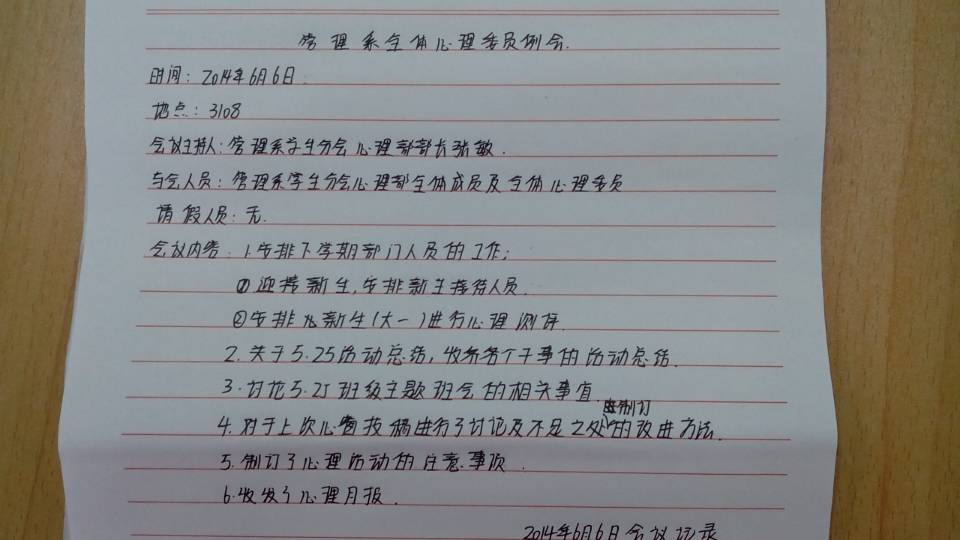 管理系全体心理委员例会.
时间: 2014年6月6日.
地点: 3108
会议主持人: 管理系学生分会心理部部长张敏.
与会人员: 管理系学生分会心理部全体成员及全体心理委员
请假人员: 无.
会议内容: 1.安排下学期部门人员的工作;
①迎接新生,安排新生接待人员.
②安排化新生(大一)进行心理测评.
2. 关于5.25活动总结,收齐各个干事的活动总结.
3. 讨论5.25班级主题班会的相关事宜
并制订
4. 对于上次心育投稿进行了讨论及不足之处的改进方法.
5. 制订了心理活动的注意事项.
6. 收发了心理月报.
2014年6月6日会议记录